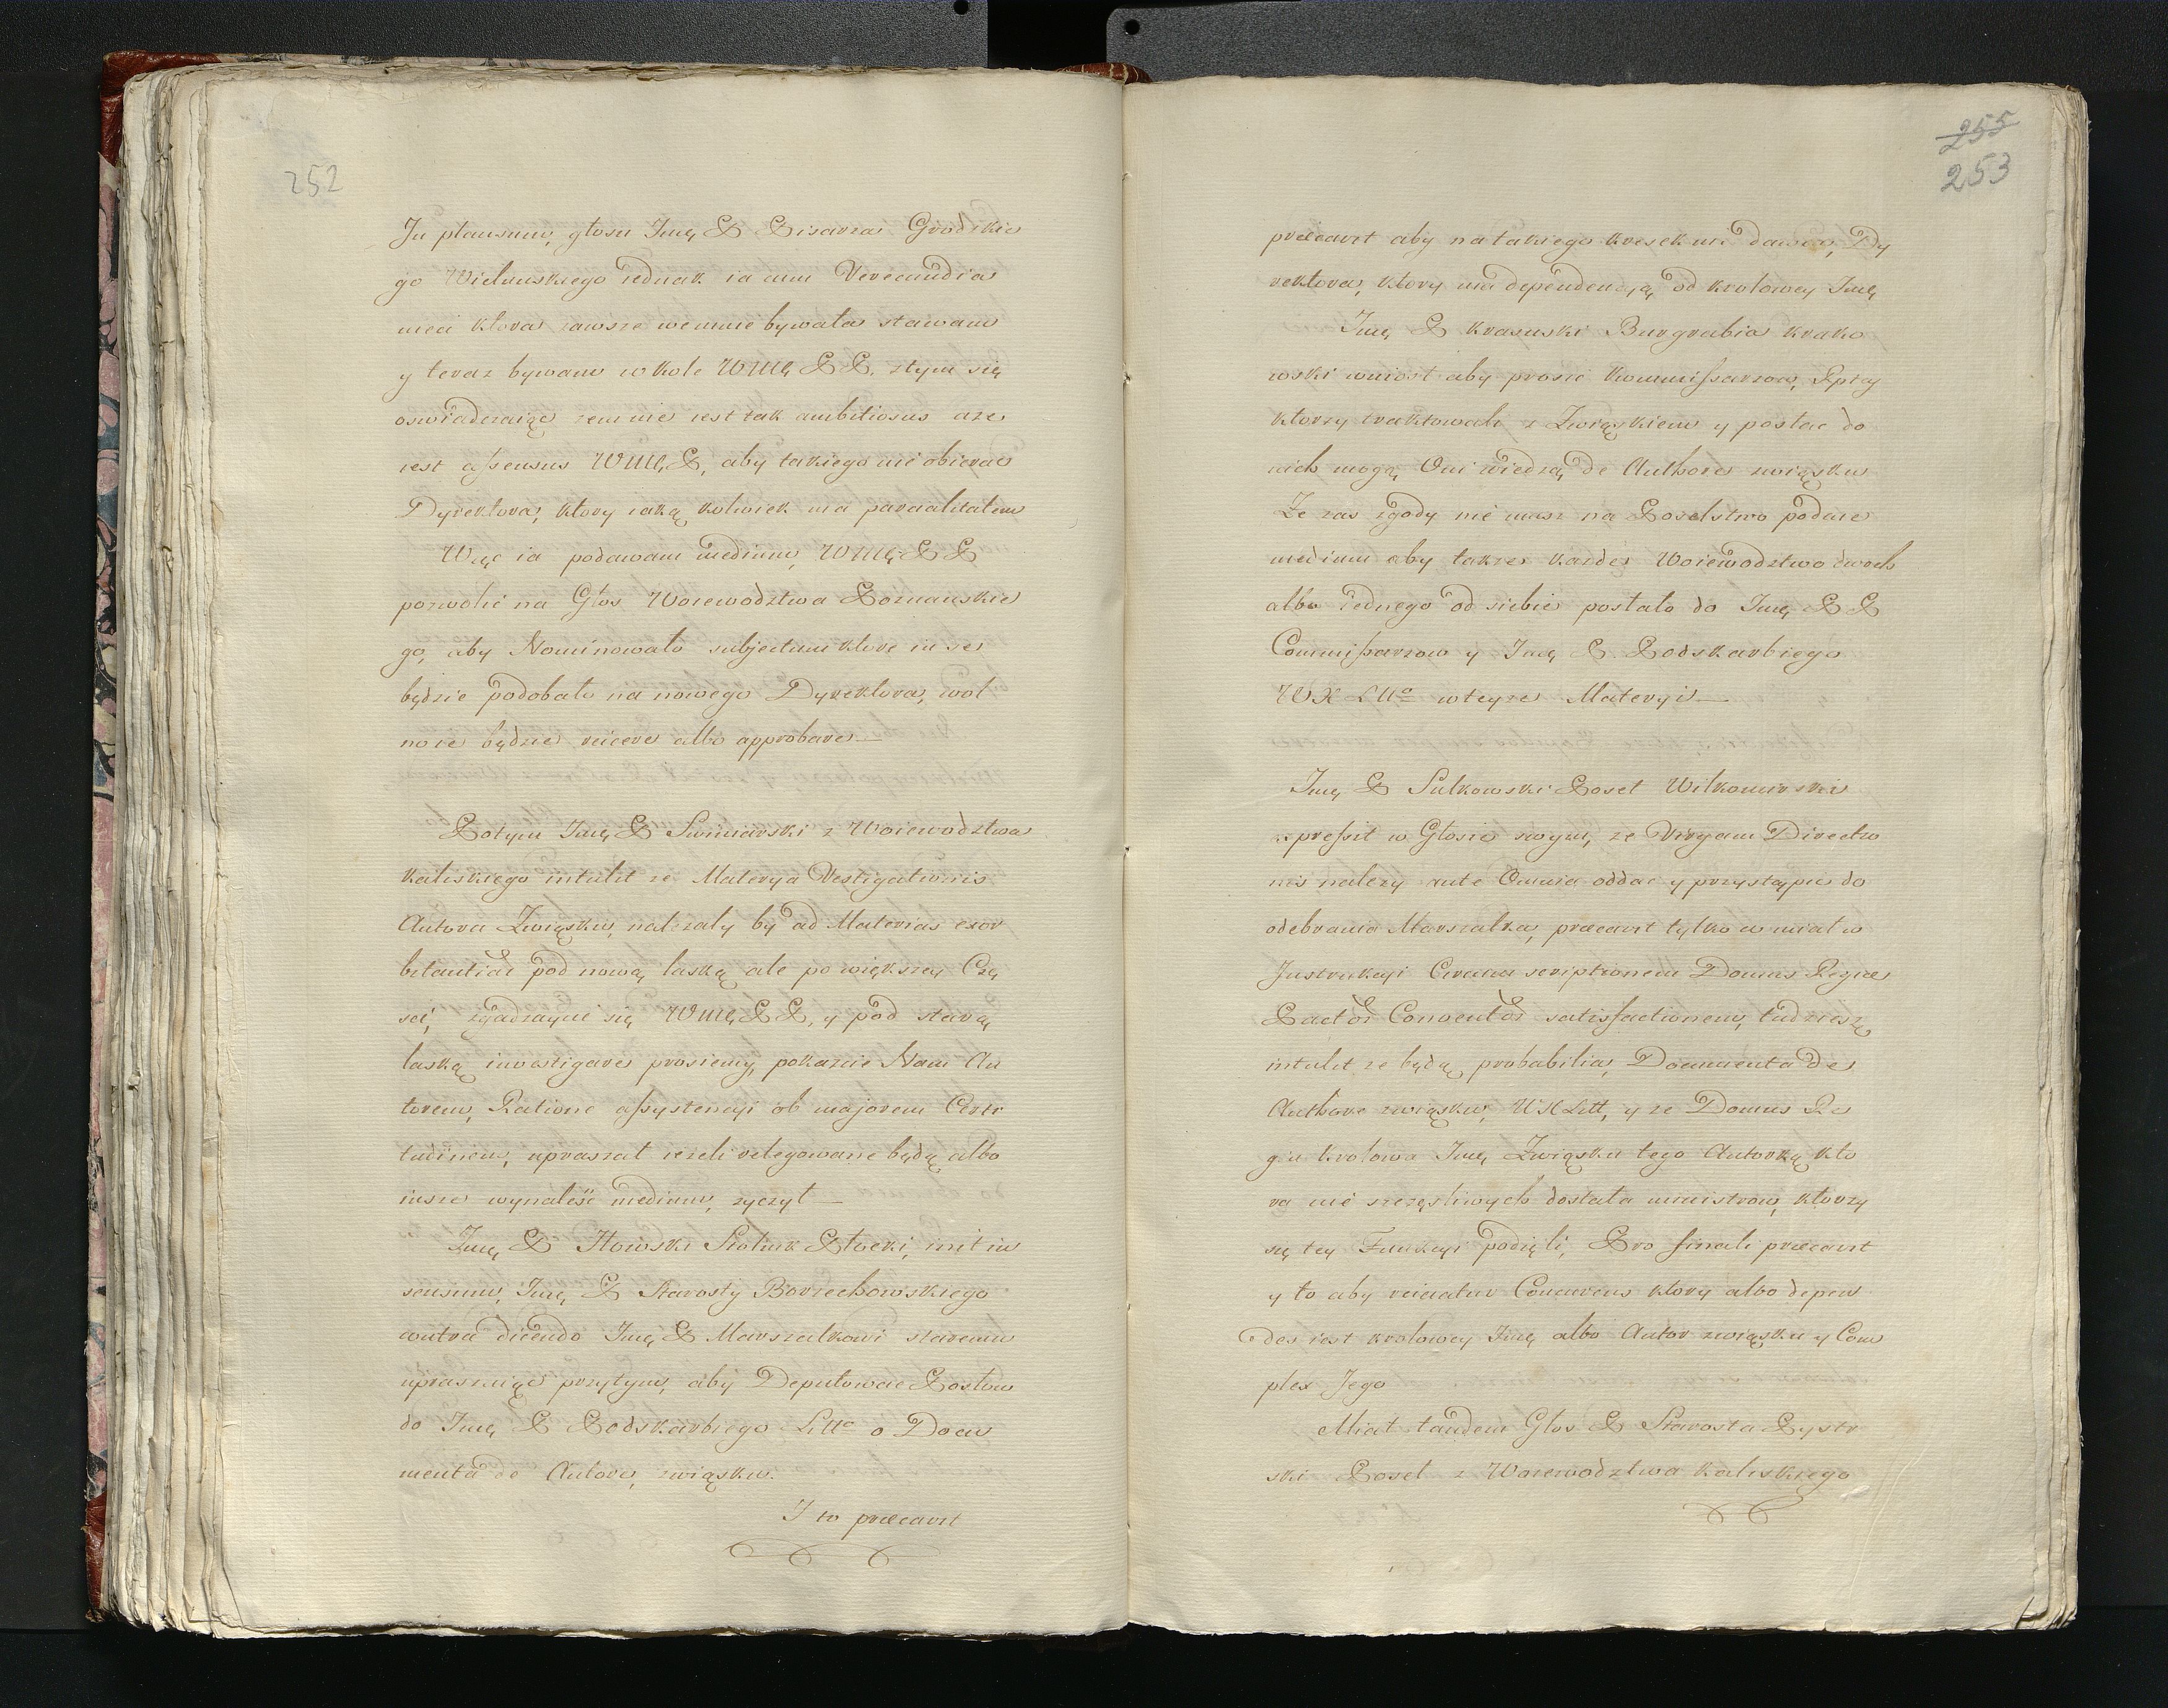 252
In plausum, głosu Imę P Pisarza Grodzkie
go Wielunskiego iednak ia cum Verecundia
mea ktora zawsze wemnie bywała stawam
y teraz bywam w kole WMę PP. ztym się
oswiadczaiąc zem nie iest tak ambitiosus aze
iest assensus WMę P, aby takiego nie obierac
Dyrektora, ktory iaką kolwiek ma parcialitatem
Więc ia podawam medium, WMę P P
pozwolic na Głos Woiewodztwa Poznanskie
go, aby Nominowało subjectum ktore im se
będzie podobało na nowego Dyrektora, wol
no ie będzie reicere albo approbare —
Potym Imę P Swiniarski z Woiewodztwa
Kaliskiego intulit ze Materya Vestigationis
Autora Związku, nalezały by ad Materias exor
bitantiae pod nową laską ale po większey Czę
sci, zgadzaymy się WMę PP, y pod starą
laską investigare prosiemy, pokaznie Nam Au
torem, Ratione assystencyi ob majorem Certi
tudinem, upraszał iezeli relegowane będą albo
insze wynaleść medium, zyczył —
Imę P Iłowski Stolnik Płocki, init in
sensum, Imę P Starosty Borzechowskiego
contradicendo Imę P Marszałkowi staremu
upraszaiąc przytym, aby Deputowac Posłow
do Imę P Podskarbiego Litto o Docu
menta de Autore, związku.
I to praecavit
255
253
praecavit aby na takiego kresek nie dawac, Dy
rektora, ktory ma dependencyą od krolowey Imę
Imę P Krasuski Burgrabia krako
wski wniosł aby prosic Kommissarzow, Rptey
ktorzy traktowali z Związkiem y posłac do
nich mogą Oni wiedzą de Authore związku
Ze zas zgody nie masz na Poselstwo podaie
medium aby takze kazde Woiewodztwo dwoch
albo iednego od siebie posłało do Imę P P
Commissarzow y Imę P. Podskarbiego
WX Litto wteyze Materyi —
Imę P Sulkowski Poseł Wilkomirski
expressit w Głosie swym, ze Virgam Directio
nis nalezy ante Omnia oddac y przystąpic do
odebrania Marszałka, praecavit tylko co miał w
Instrukcyi Circumscriptionem Domus Regiae
Pactor Conventor satisfactionem, tudziesz
intulit ze będą probabilia, Documenta de
Authore związku, WXLitt, y ze Domus Re
gia krolowa Imę Związku tego Autorką kto
ra nie szczęsliwych dostała ministrow, ktorzy
się tey Funkcyi podięli, Pro finali praecavit
y to aby reiciatur Concurens ktory albo depen
des iest krolowey Imę albo Autor związku y Com
plex Jego
Miał tandem Głos P Starosta Pyzdr
ski Poseł z Woiewodztwa Kaliskiego